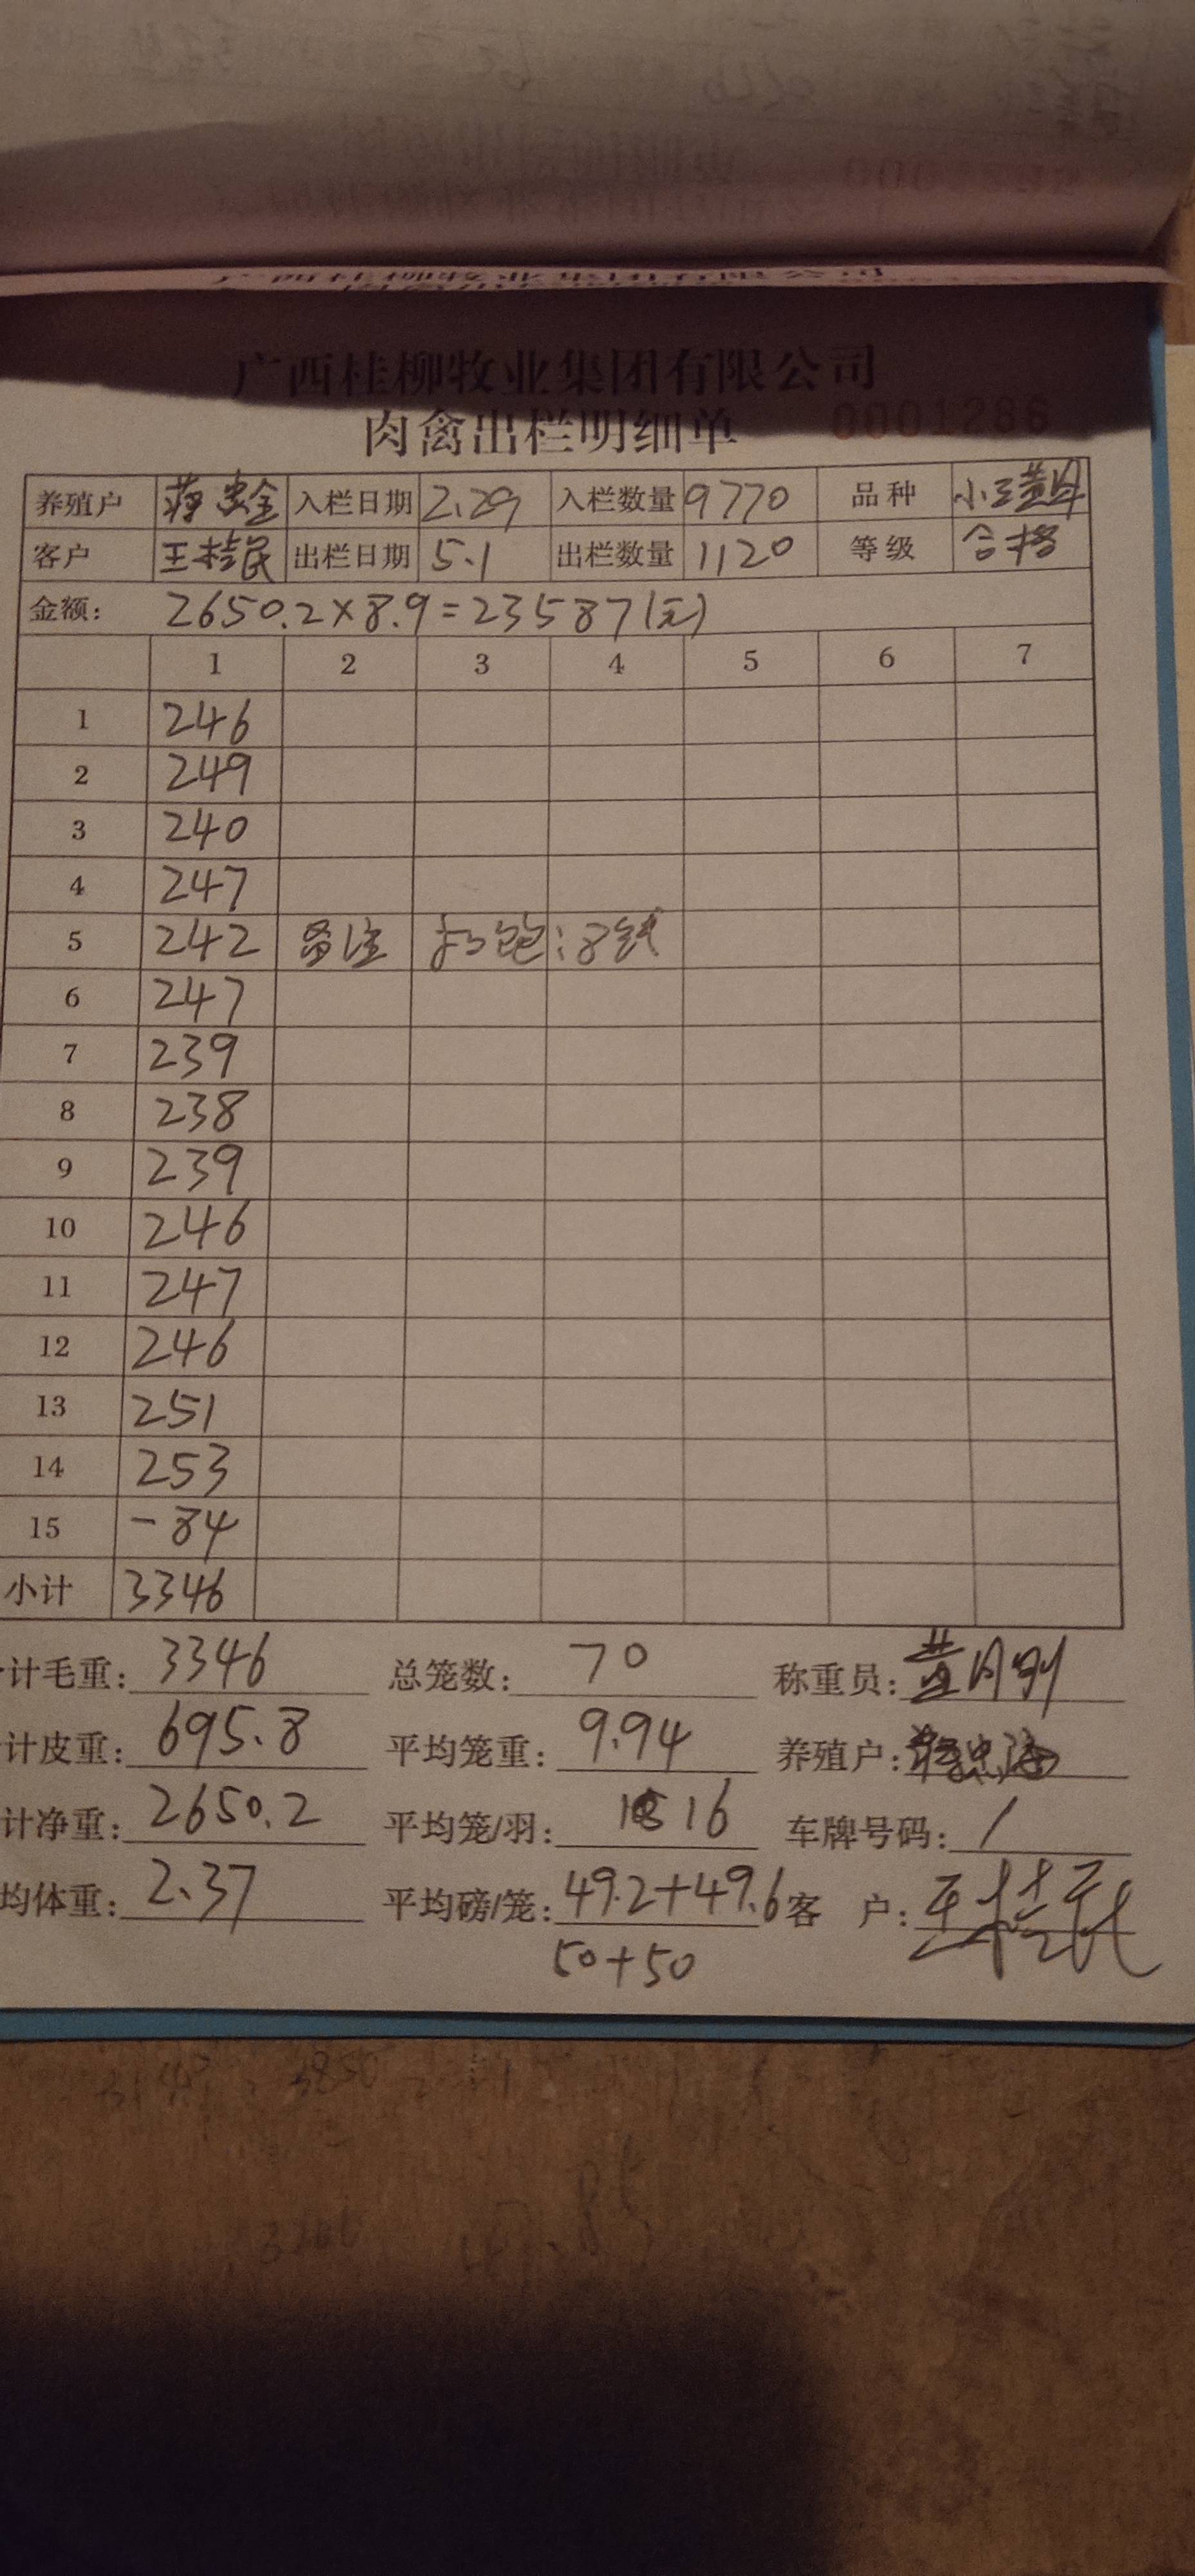 广西桂柳牧业集团有限公司
肉禽出栏明细单 0001286
养殖户 蒋忠全 入栏日期 2.29 入栏数量 9770 品种 小三黄母
客户 王桂民 出栏日期 5.1 出栏数量 1120 等级 合格
金额: 2650.2×8.9=23587(元)
1 2 3 4 5 6 7
1 246
2 249
3 240
4 247
5 242 备注 扣饱:8钱
6 247
7 239
8 238
9 239
10 246
11 247
12 246
13 251
14 253
15 -84
小计 3346
计毛重: 3346 总笼数: 70 称重员: 黄月
计皮重: 695.8 平均笼重: 9.94 养殖户:
计净重: 2650.2 平均笼/羽: 16 车牌号码: /
均体重: 2.37 平均磅/笼: 49.2+49.6 客 户: 王桂民
50+50